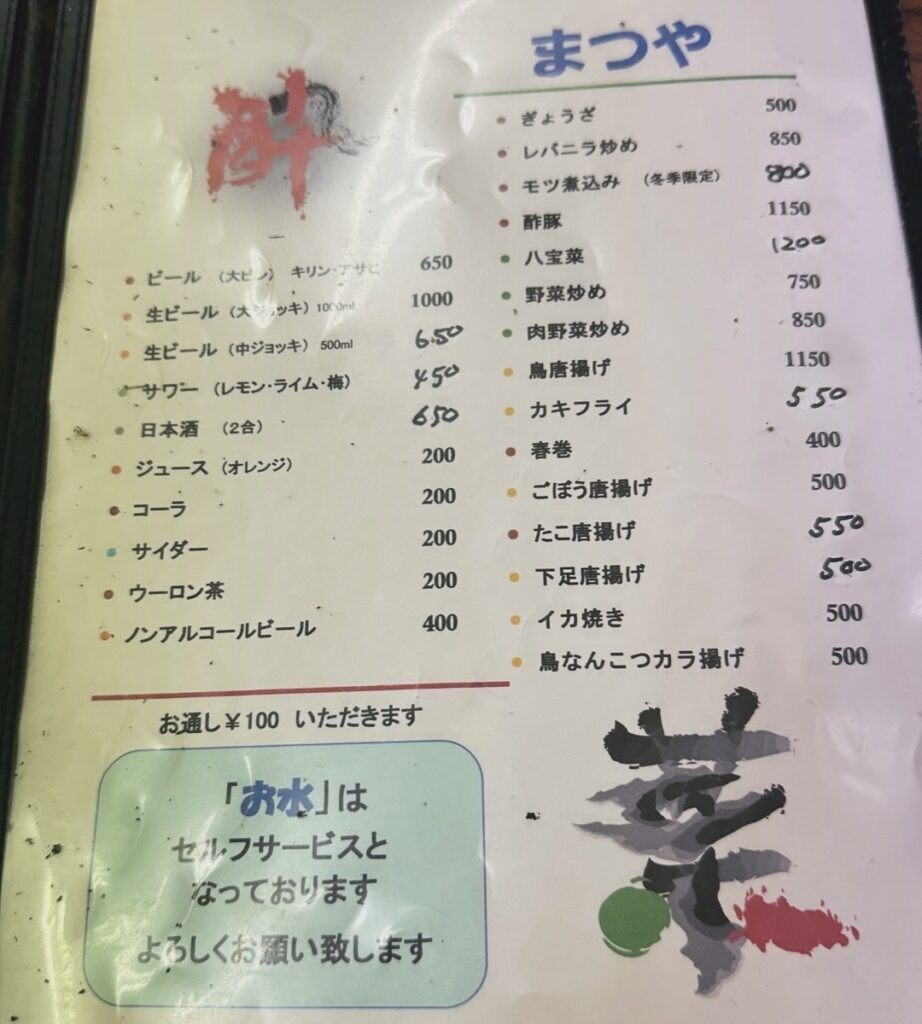 まつや
酎
ビール （大ビン） キリン・アサヒ 650
生ビール（大ジョッキ）1000ml 1000
生ビール（中ジョッキ）500ml 650
サワー （レモン・ライム・梅） 450
日本酒 （2合） 650
ジュース（オレンジ） 200
コーラ 200
サイダー 200
ウーロン茶 200
ノンアルコールビール 400
お通し￥100 いただきます
「お水」は
セルフサービスと
なっております
よろしくお願い致します
ぎょうざ 500
レバニラ炒め 850
モツ煮込み （冬季限定） 800
酢豚 1150
八宝菜 1200
野菜炒め 750
肉野菜炒め 850
鳥唐揚げ 1150
カキフライ 550
春巻 400
ごぼう唐揚げ 500
たこ唐揚げ 550
下足唐揚げ 500
イカ焼き 500
鳥なんこつカラ揚げ 500